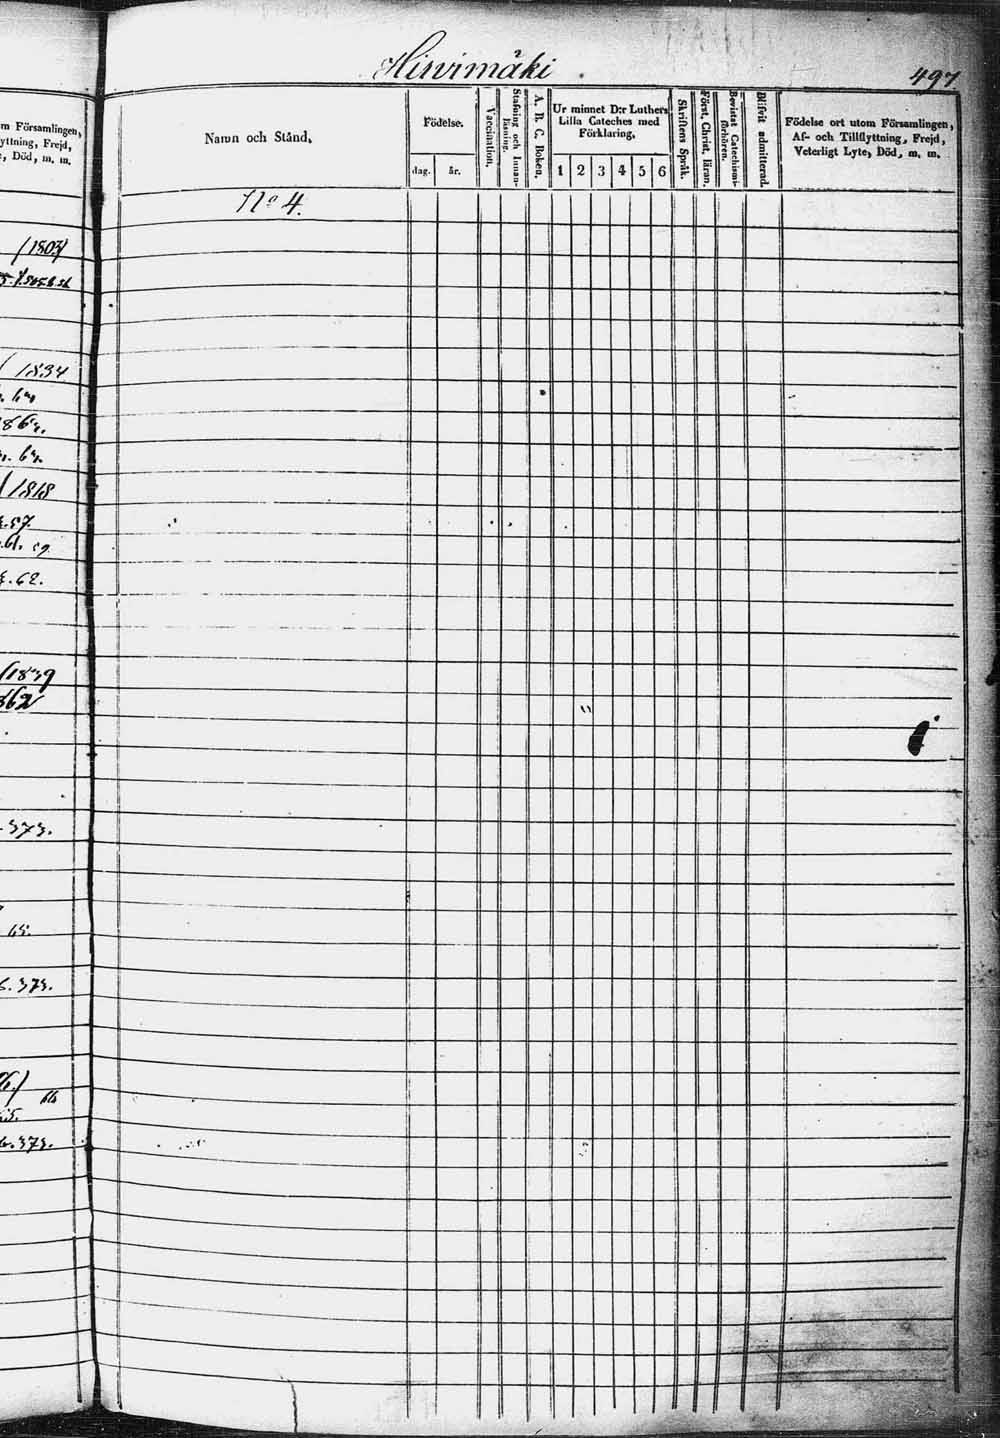 Hirvimäki
497.
m Församlingen,
yttning, Frejd,
, Död, m. m.
Namn och Stånd.
Födelse.
dag.
år.
Vaccination.
Stafning och Innan-
läsning.
A. B. C. Boken.
Ur minnet D:r Luthers
Lilla Cateches med
Förklaring,
1 2 3 4 5 6
Skriftens Språk.
Först. Christ. läran.
Bevistat Catechismi-
förhören.
Blifvit admitterad.
Födelse ort utom Församlingen,
Af- och Tillflyttning, Frejd,
Veterligt Lyte, Död, m. m.
No 4.
(1803)
(1834
(1818
.57.
.61. 59
.62.
(1839
862
.373.
65.
6.373.
66
6.373.